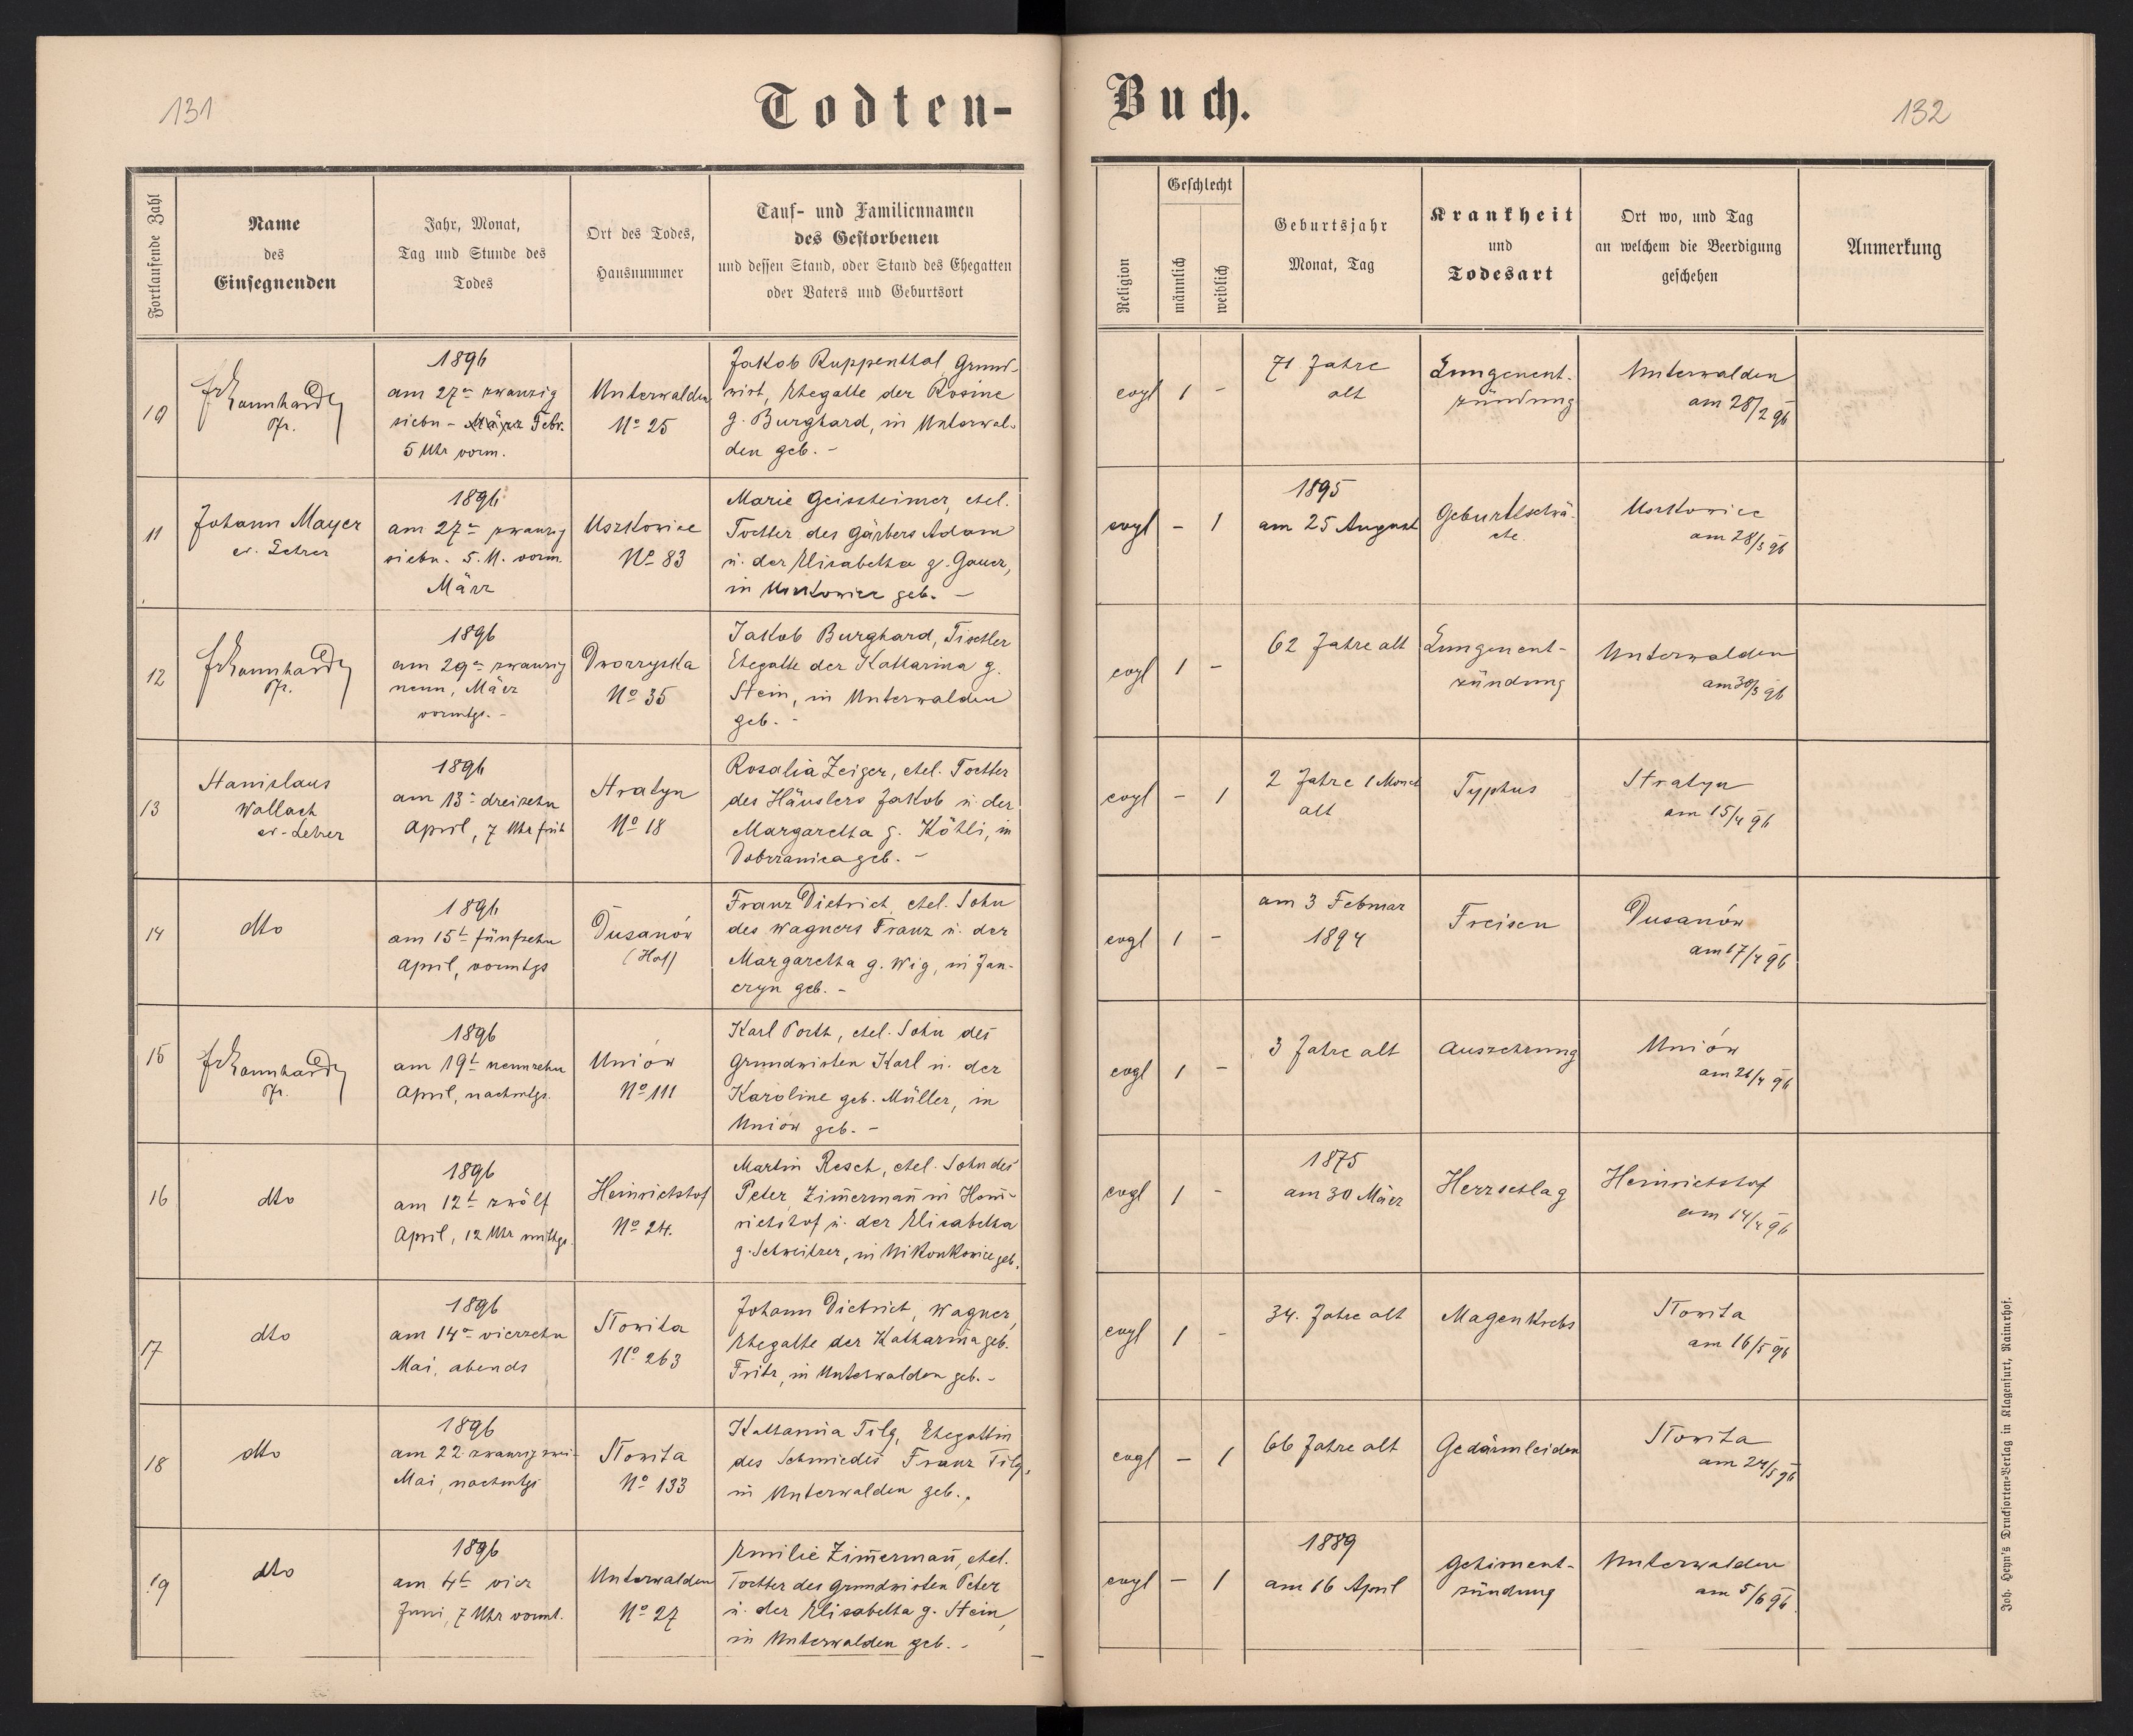 131
Todten-
Fortlaufende Zahl
Name
des
Einsegnenden
Jahr, Monat,
Tag und Stunde des
Todes
Ort des Todes,
Hausnummer
Tauf- und Familiennamen
des Gestorbenen
und dessen Stand, oder Stand des Ehegatten
oder Vaters und Geburtsort
10
Pfr.
1896
am 27- zwanzig
siebn - März Febr.
5 Uhr vorm.
Unterwalden
No 25
Jakob Ruppenthal, Grund-
wirt, Ehegatte der Rosine
g. Burghard, in Unterwal-
den geb. -
11
Johann Mayer
ev. Lehrer
1896
am 27- zwanzig
siebn. 5. U. vorm.
März
Uszkowice
No 83
Marie Geissheimer, ehel.
Tochter des Gärbers Adam
u. der Elisabetha g. Gauer,
in Uszkowice geb. -
12
Pfr.
1896
am 29- zwanzig
neun, März
vormtgs. -
Dworzyska
No 35
Jakob Burghard, Tischler
Ehegatte der Katharina g.
Stein, in Unterwalden
geb. -
13
Stanislaus
Wallach
ev-Lehrer
1896
am 13- dreizehn
April, 7 Uhr früh
Stratyn
No 18
Rosalia Zeiger, ehel. Tochter
des Häuslers Jakob u. der
Margaretha g. Köhli, in
Dobrzanica geb. -
14
dto
1896
am 15t fünfzehn
April, vormtgs
Dusanów
(Hof)
Franz Dietrich, ehel. Sohn
des Wagners Franz u. der
Margaretha g. Wig, in Jan-
czyn geb. -
15
Pfr.
1896
am 19t neunzehn
April, nachmtgs.
Uniów
No 111
Karl Porth, ehel. Sohn des
Grundwirten Karl u. der
Karoline geb. Müller, in
Uniów geb. -
16
dto
1896
am 12t zwölf
April, 12 Uhr mittgs.
Heinrichshof
No 24.
Martin Resch, ehel. Sohn des
Peter Zimermañ in Hein-
richshof u. der Elisabetha
g. Schweitzer, in Mikonkowice geb.
17
dto
1896
am 14- vierzehn
Mai, abends
Słowita
No 263
Johann Dietrich, Wagner,
Ehegatte der Katharina geb.
Fritz, in Unterwalden geb. -
18
dto
1896
am 22. zwanzig zwei-
Mai, nachmtgs
Słowita
No 133
Katharina Filg, Ehegattin
des Schmiedes Franz Filg,
in Unterwalden geb.
19
dto
1896
am 4t vier
Juni, 7 Uhr vormt.
Unterwalden
No 27
Emilie Zimermañ, ehel.
Tochter des Grundwirten Peter
u. der Elisabetha g. Stein,
in Unterwalden geb. -
Buch.
132
Religion
Geschlecht
männlich
weiblich
Geburtsjahr
Monat, Tag
Krankheit
und
Todesart
Ort wo, und Tag
an welchem die Beerdigung
geschehen
Anmerkung
evgl 1 -
71 Jahre
alt
Lungenent-
zündung
Unterwalden
am 28/2 96
evgl - 1
1895
am 25 August
Geburtsschwä-
che
Uszkowice
am 28/3 96
evgl 1 -
62 Jahre alt
Lungenent-
zündung
Unterwalden
am 30/3 96
evgl - 1
2 Jahre 1 Monat
alt
Typhus
Stratyn
am 15/4 96
evgl 1 -
am 3 Februar
1894
Freisen
Dusanów
am 17/4 96
evgl 1 -
3 Jahre alt
Auszehrung
Uniów
am 21/4 96
evgl 1 -
1875
am 30 März
Herzschlag
Heinrichshof
am 14/4 96
evgl 1 -
34. Jahre alt
Magenkrebs
Słowita
am 16/5 96
evgl - 1
66 Jahre alt
Gedärmleiden
Słowita
am 24/5 96
evgl - 1
1889
am 16 April
Gehirnent-
zündung
Unterwalden
am 5/6 96.
Joh. Heyn's Drucksorten-Verlag in Klagenfurt, Rainerhof.